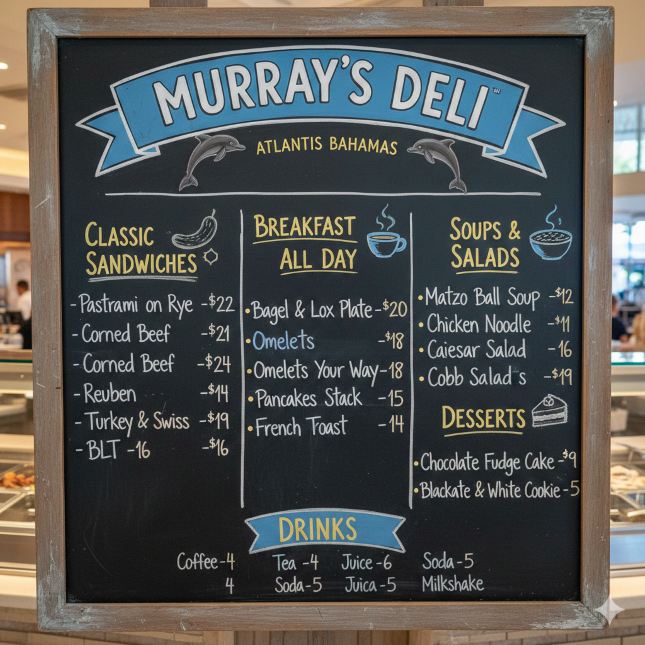 MURRAY'S DELI
ATLANTIS BAHAMAS
CLASSIC
SANDWICHES
-Pastrami on Rye -$22
-Corned Beef -$21
-Corned Beef -$24
-Reuben -$14
-Turkey & Swiss -$19
-BLT -16 -$16
BREAKFAST
ALL DAY
•Bagel & Lox Plate-$20
•Omelets -$18
•Omelets Your Way-18
•Pancakes Stack -15
•French Toast -14
SOUPS &
SALADS
•Matzo Ball Soup -$12
•Chicken Noodle -$11
•Caiesar Salad -16
•Cobb Salad s -$19
DESSERTS
•Chocolate Fudge Cake -$9
•Blackate & White Cookie-5
DRINKS
Coffee-4 Tea -4 Juice -6 Soda-5
4 Soda-5 Juica-5 Milkshake